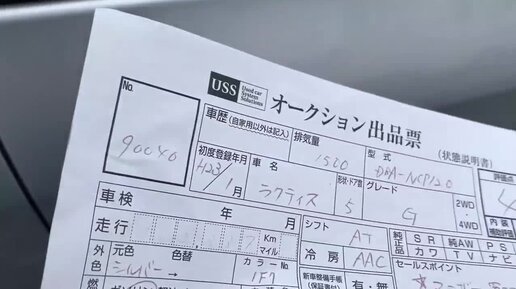 USS Used car System Solutions オークション出品票
(状態説明書)
No. 90040
車歴 (自家用以外は記入) 排気量 1500 型式 DBA-NCP120 評価点 4
初度登録年月 H23/1月 車名 ラクティス 形状・ドア数 5 グレード G 2WD・4WD 内装 補助評価
車検 年 月 シフト AT 純正品 SR 純AW PS
走行 Km マイル 冷房 AAC カワ TV ナビ
外色 元色 シルバー→ 色替 カラーNo. 1F7 新車整備手帳 (保証書付) 有・無 セールスポイント